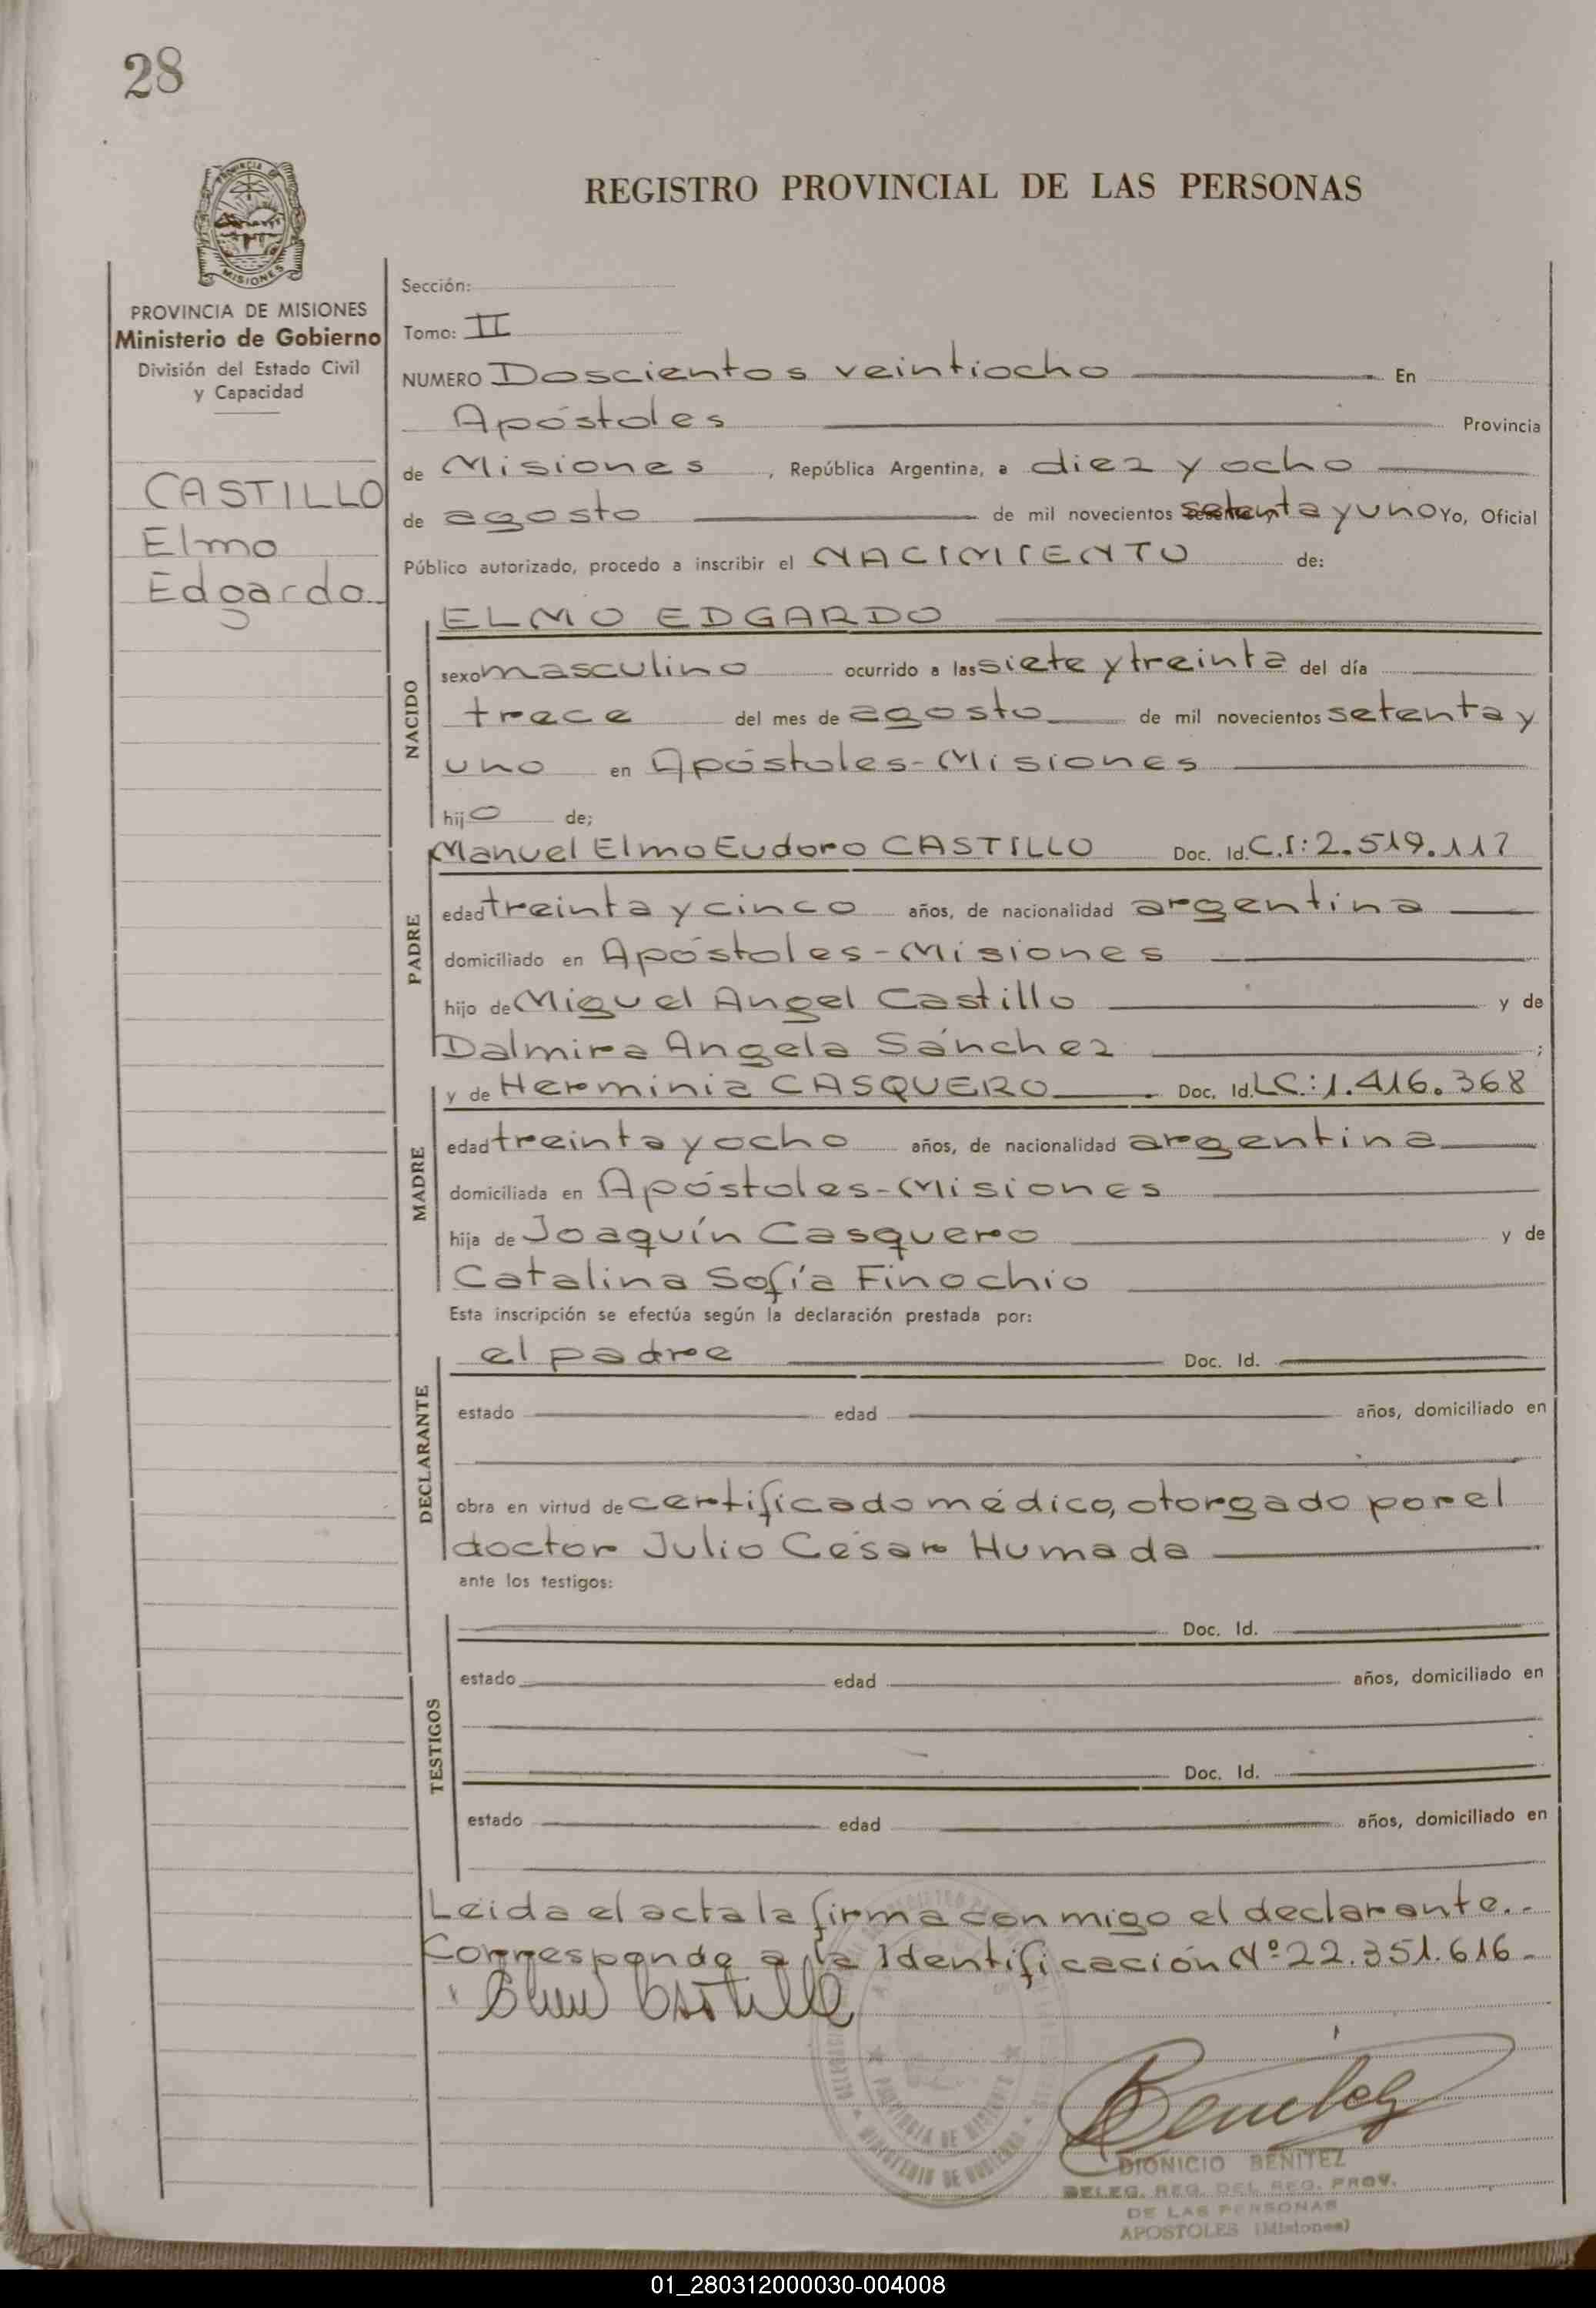 28
PROVINCIA DE
MISIONES
REGISTRO PROVINCIAL DE LAS PERSONAS
PROVINCIA DE MISIONES
Ministerio de Gobierno
División del Estado Civil
y Capacidad
CASTILLO
Elmo
Edgardo
Sección:
Tomo: II
NUMERO Doscientos veintiocho En
Apóstoles Provincia
de Misiones, República Argentina, a diez y ocho
de agosto de mil novecientos setenta y uno Yo, Oficial
Público autorizado, procedo a inscribir el NACIMIENTO de:
NACIDO
ELMO EDGARDO
sexo masculino ocurrido a las siete y treinta del día
trece del mes de agosto de mil novecientos setenta y
uno en Apóstoles-Misiones
hijo de;
PADRE
Manuel Elmo Eudoro CASTILLO Doc. Id. C.I: 2.519.117
edad treinta y cinco años, de nacionalidad argentina
domiciliado en Apóstoles-Misiones
hijo de Miguel Angel Castillo y de
Dalmira Angela Sánchez ;
MADRE
y de Herminia CASQUERO Doc. Id. L.C.: 1.416.368
edad treinta y ocho años, de nacionalidad argentina
domiciliada en Apóstoles-Misiones
hija de Joaquín Casquero y de
Catalina Sofía Finochio
Esta inscripción se efectúa según la declaración prestada por:
DECLARANTE
el padre Doc. Id.
estado edad años, domiciliado en
obra en virtud de certificado médico, otorgado por el
doctor Julio César Humada
ante los testigos:
TESTIGOS
Doc. Id.
estado edad años, domiciliado en
Doc. Id.
estado edad años, domiciliado en
Leida el acta la firma con migo el declarante..
Corresponde a la Identificación Nº 22.351.616.-
Elmo Castillo
PROVINCIA DE MISIONES
MINISTERIO DE GOBIERNO
Benitez
DIONICIO BENITEZ
DELEG. REG. DEL REG. PROV.
DE LAS PERSONAS
APOSTOLES (Misiones)
01_280312000030-004008